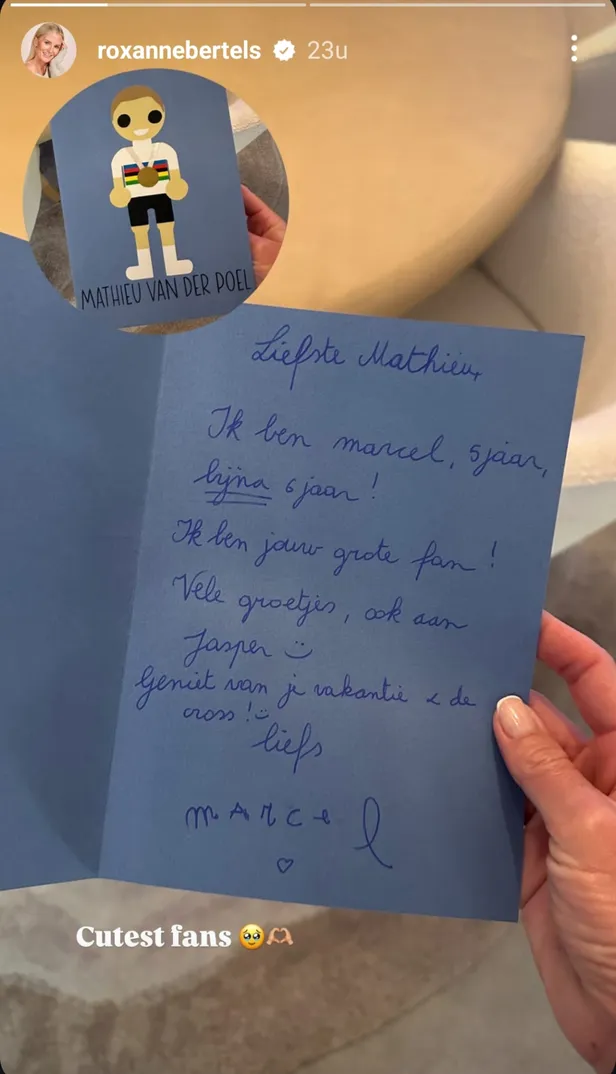 roxannebertels 23u
MATHIEU VAN DER POEL
Liefste Mathieu,
Ik ben marcel, 5 jaar,
bijna 6 jaar!
Ik ben jouw grote fan!
Vele groetjes, ook aan
Jasper :)
Geniet van je vakantie & de
cross! :)
liefs
MARCel
♡
Cutest fans 🥹🫶🏼